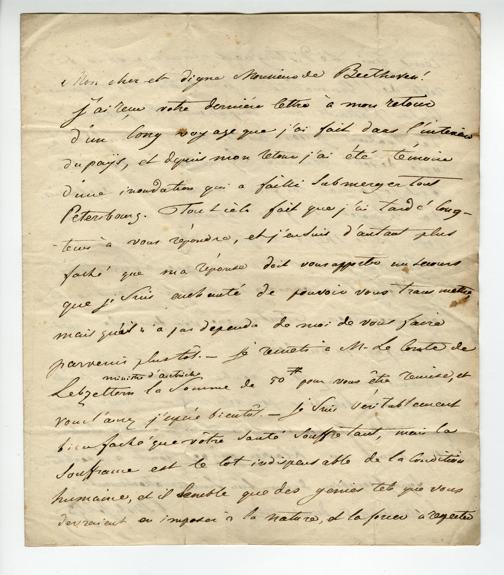 Mon cher et digne Monsieur de Beethoven!
j'ai reçu votre dernière lettre à mon retour
d'un long voyage que j'ai fait dans l'interieur
du païs, et depuis mon retour j'ai été témoin
d'une inondation qui a failli submerger tout
Petersbourg. Tout cela fait que j'ai tardé long-
tems à vous répondre, et j'en suis d'autant plus
faché que ma réponse doit vous apporter un secours
que je suis enchanté de pouvoir vous transmettre
mais qu'il n'a pas dependu de moi de vous faire
parvenir plustot. — je remets à Mr. Le Comte de
Lebzeltern ministre d'autriche la Somme de 50# pour vous être remise, et
vous l'aurez j'espère bientôt. — je suis véritablement
bien faché que vôtre santé souffre tant, mais la
souffrance est le lot indispensable de la Condition
humaine, et il semble que des genies tels que vous
devraient en imposer à la nature, et la forcer à respecter